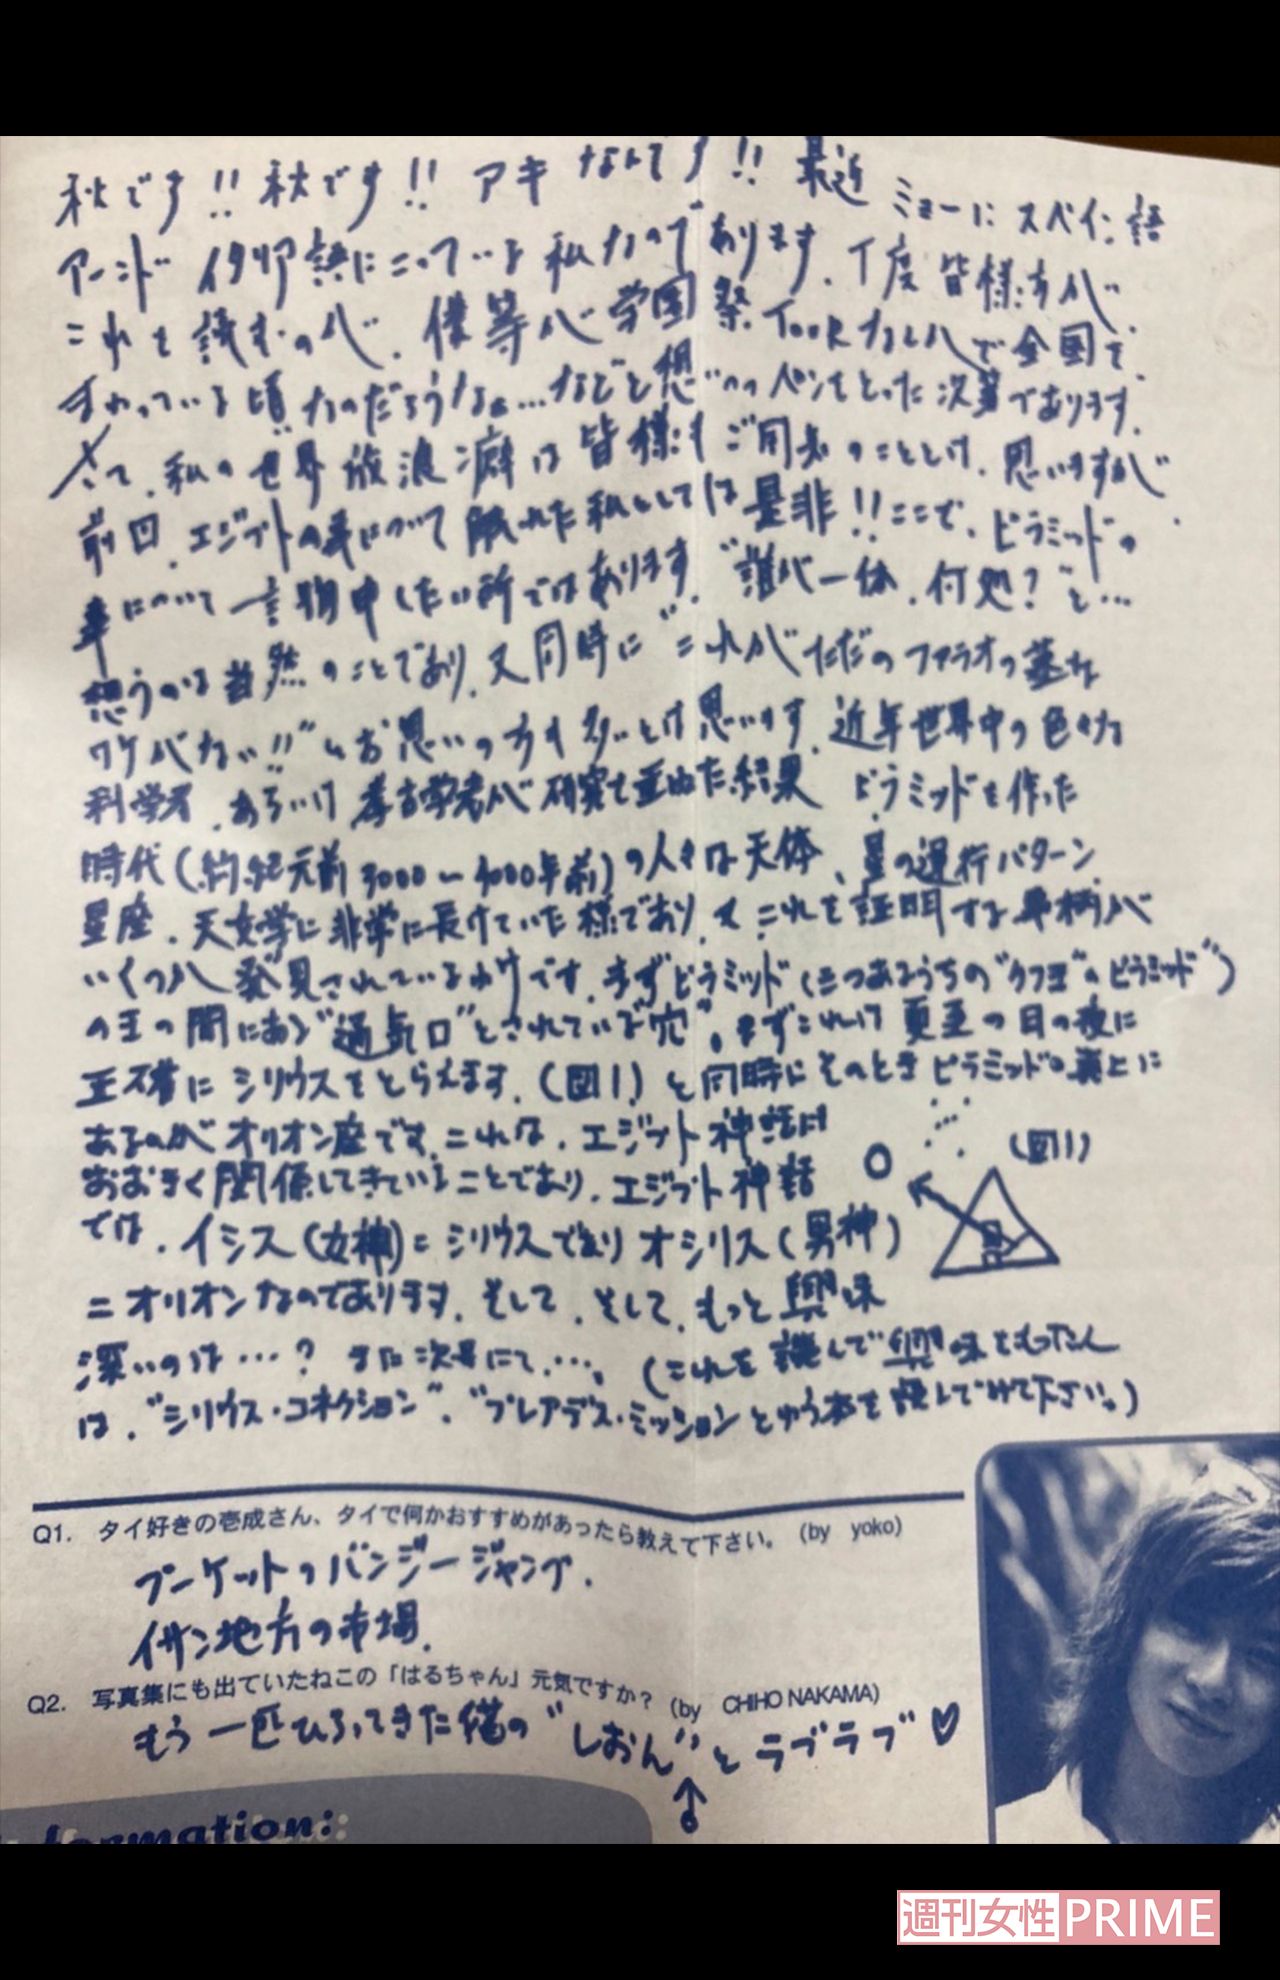 秋です!! 秋です!! アキ なんです!! 最近 ミョーに スペイン語
アーンド イタリア語にこっている 私なのであります。丁度 皆様方が
これを読むのが、僕等が学園祭 TOUR なんかで全国を
まわっている頃なのだろうなぁ…などと想いつつペンをとった次第であります。
さて、私の世界放浪癖は皆様もご周知のこととは、思いますが
前回、エジプトの事について触れた私としては是非!! ここで、ピラミッドの
事について一言物申したい所ではあります。"誰が一体、何処?"と…
想うのは当然のことであり、又同時に"これがただのファラオの墓な
ワケがない!!"とお思いの方も多いとは思います。近年世界中の色々な
科学者、あるいは考古学者が研究を重ねた結果 ピラミッドを作った
時代(約紀元前3000〜4000年前)の人々は天体、星の運行パターン、
星座、天文学に非常に長けていた様であり、又これを証明する事柄が
いくつか発見されているわけです。まずピラミッド(三つあるうちの"クフ王"のピラミッド")
の王の間にある"通気口"とされている"穴"。まずこれは夏至の日の夜に
正確にシリウスをとらえます。(図1)と同時にそのときピラミッドの真上に
あるのがオリオン座です。これは、エジプト神話に
おおきく関係してきていることであり、エジプト神話
(図1)
では、イシス(女神)=シリウスであり オシリス(男神)
=オリオンなのであります。そして、そして、もっと興味
深いのは…? また次号にて…。(これを読んで興味をもった人
は、"シリウス・コネクション"、"プレアデス・ミッションとゆう本を読んでみて下さい。)
Q1. タイ好きの壱成さん、タイで何かおすすめがあったら教えて下さい。(by yoko)
プーケットのバンジージャンプ.
イサン地方の市場.
Q2. 写真集にも出ていたねこの「はるちゃん」元気ですか？(by CHIHO NAKAMA)
もう一匹ひろってきた猫の"しおん"とラブラブ♡
formation:
週刊女性PRIME